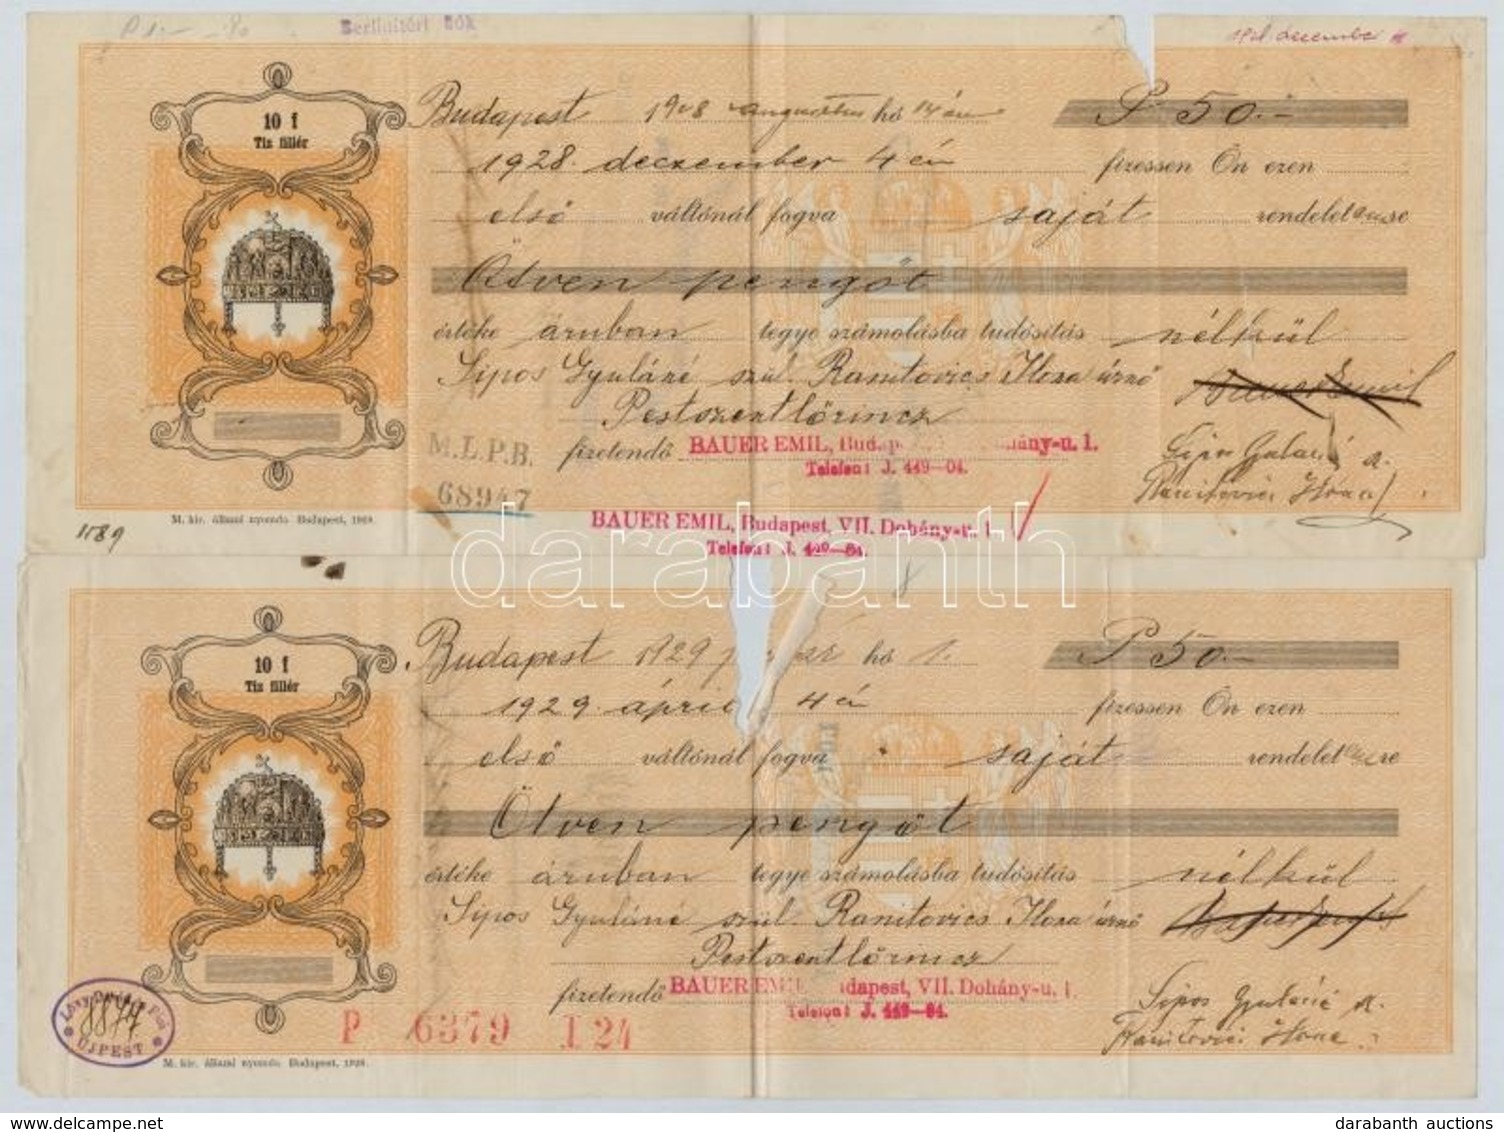 Berlinitőri fiók
1928. december
10 f
Tiz fillér
Budapest 1928 augusztus hó 14 én P 50.-
1928. deczember 4 én fizessen Ön ezen
első váltónál fogva saját rendelet re
Ötven pengőt
értéke áruban tegye számolásba tudósítás nélkül
Sipos Gyuláné szül. Ranitovics Ilona úrnő
Pestszentlőrincz
M.L.P.B. fizetendő BAUER EMIL, Budap hány-u. 1.
Telefon: J. 449—04.
68947
Sipos Gyuláné
Ranitovics Ilona
M. kir. állami nyomda. Budapest, 1928.
1589
BAUER EMIL, Budapest, VII. Dohány-u. 1
Telefon: J. 449—04.
darabanth
8
10 f
Tiz fillér
Budapest 1929 hó 1. P 50.-
1929. ápri 4 én fizessen Ön ezen
első váltónál fogva saját rendelet re
Ötven pengőt
értéke áruban tegye számolásba tudósítás nélkül
Sipos Gyuláné szül. Ranitovics Ilona úrnő
Pestszentlőrincz
fizetendő BAUER EMIL dapest, VII. Dohány-u. 1.
Telefon: J. 449—04.
Sipos Gyuláné
Ranitovics Ilona
P 6379 I 24
8874
ÚJPEST
M. kir. állami nyomda. Budapest, 1928.
darabanth auctions